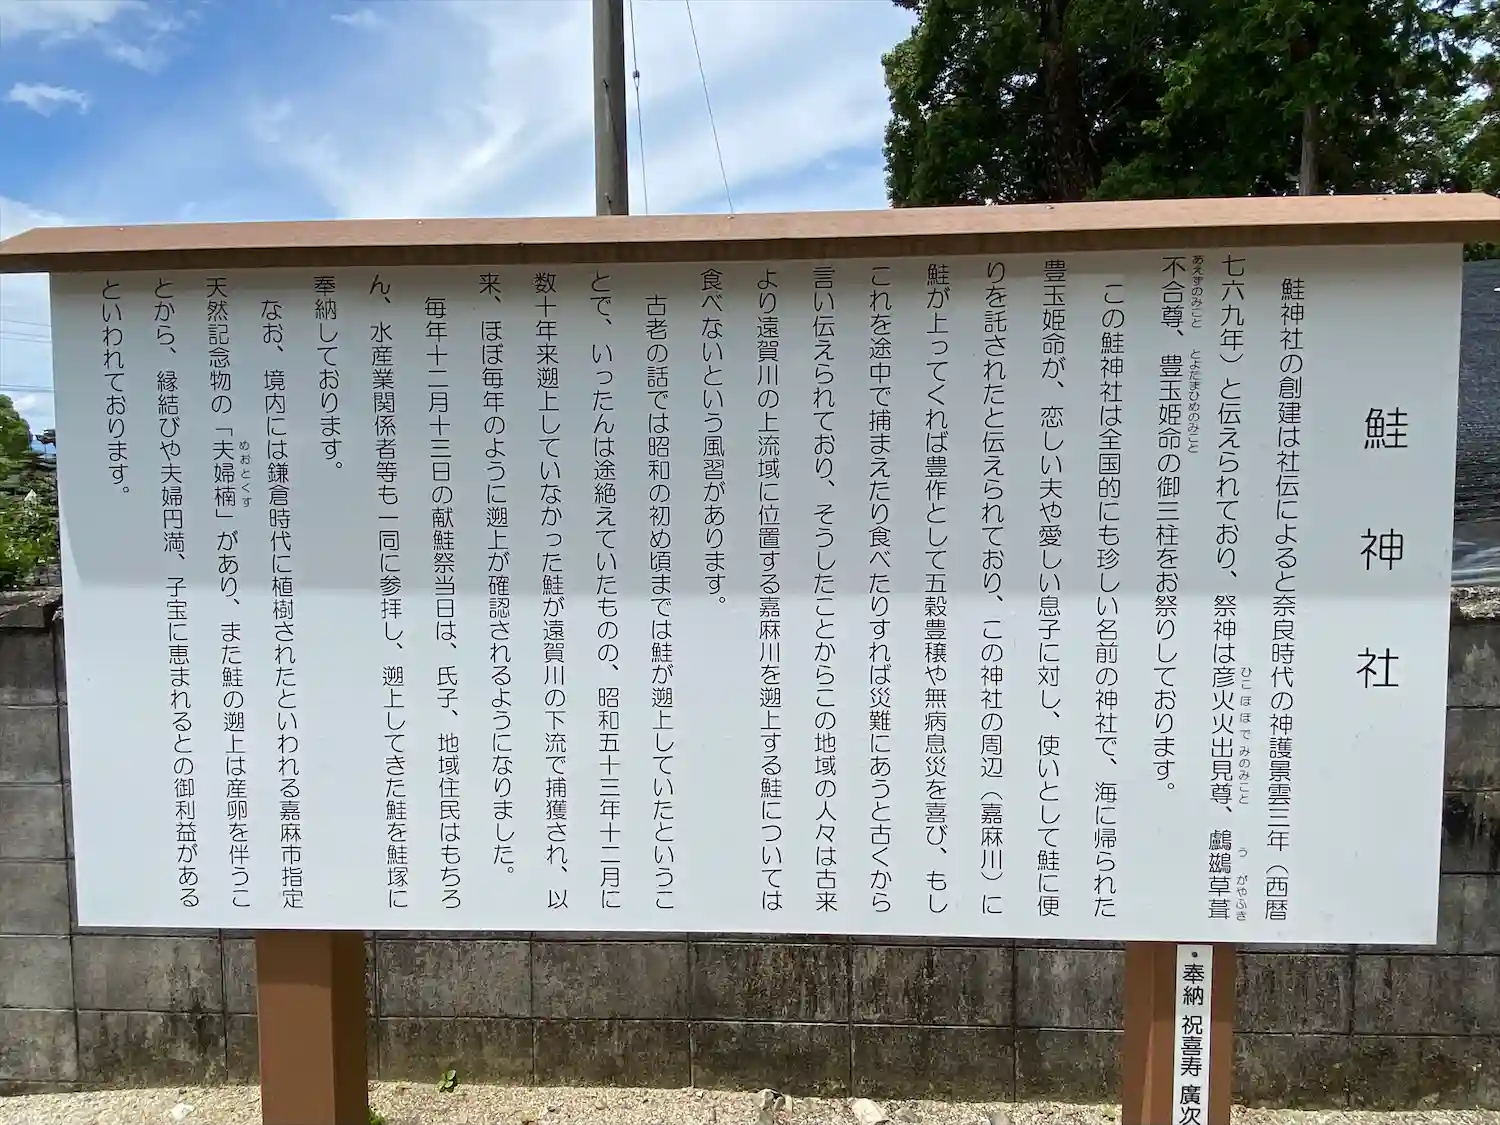 鮭神社
鮭神社の創建は社伝によると奈良時代の神護景雲三年（西暦
七六九年）と伝えられており、祭神は彦火火出見尊、鸕鷀草葺
ひこほほでみのみこと
うがやふき
不合尊、豊玉姫命の御三柱をお祭りしております。
あえずのみこと
とよたまひめのみこと
この鮭神社は全国的にも珍しい名前の神社で、海に帰られた
豊玉姫命が、恋しい夫や愛しい息子に対し、使いとして鮭に便
りを託されたと伝えられており、この神社の周辺（嘉麻川）に
鮭が上ってくれば豊作として五穀豊穣や無病息災を喜び、もし
これを途中で捕まえたり食べたりすれば災難にあうと古くから
言い伝えられており、そうしたことからこの地域の人々は古来
より遠賀川の上流域に位置する嘉麻川を遡上する鮭については
食べないという風習があります。
古老の話では昭和の初め頃までは鮭が遡上していたというこ
とで、いったんは途絶えていたものの、昭和五十三年十二月に
数十年来遡上していなかった鮭が遠賀川の下流で捕獲され、以
来、ほぼ毎年のように遡上が確認されるようになりました。
毎年十二月十三日の献鮭祭当日は、氏子、地域住民はもちろ
ん、水産業関係者等も一同に参拝し、遡上してきた鮭を鮭塚に
奉納しております。
なお、境内には鎌倉時代に植樹されたといわれる嘉麻市指定
天然記念物の「夫婦楠」があり、また鮭の遡上は産卵を伴うこ
めおとくす
とから、縁結びや夫婦円満、子宝に恵まれるとの御利益がある
といわれております。
奉納 祝喜寿 廣次